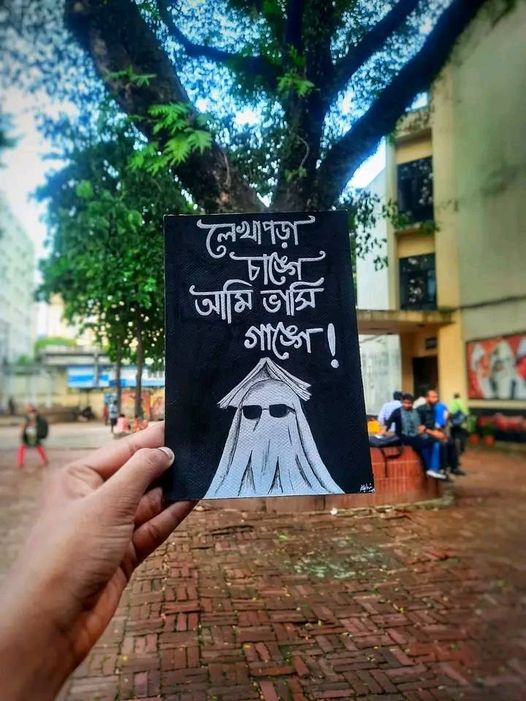 লেখাপড়া
চাঙ্গে
আমি ভাসি
গাঙ্গে!